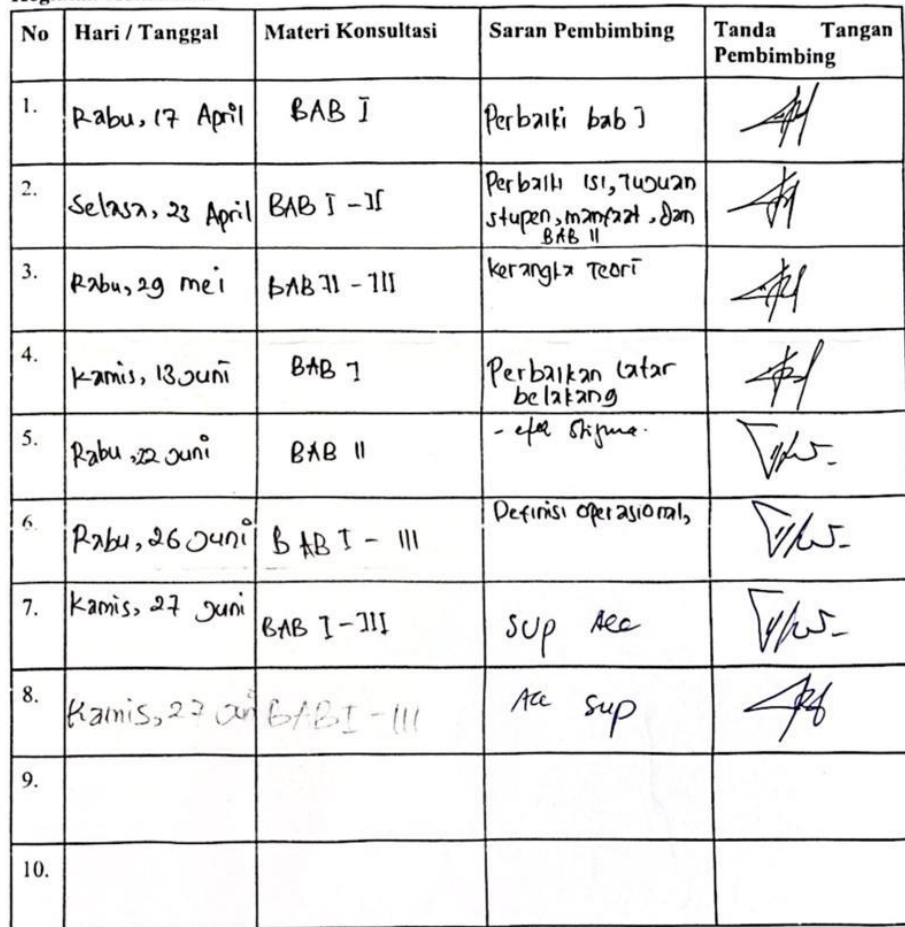 No Hari / Tanggal Materi Konsultasi Saran Pembimbing Tanda Tangan
Pembimbing
1. Rabu, 17 April BAB I Perbaiki bab I
2. Selasa, 23 April BAB I - II Perbaiki isi, Tujuan
stupen, manfaat, dan
BAB II
3. Rabu, 29 mei BAB II - III kerangka Teori
4. Kamis, 13 Juni BAB I Perbaikan latar
belakang
5. Rabu, 22 Juni BAB II - stigma.
6. Rabu, 26 Juni BAB I - III Definisi operasional,
7. Kamis, 27 Juni BAB I - III sup Acc
8. Kamis, 27 Jun BAB I - III Acc sup
9.
10.